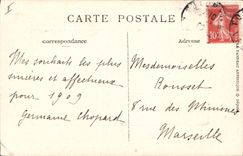 CARTE POSTALE
Correspondance
Adresse
Mes souhaits les plus
sincères et affectueux
pour 1909
Germaine Chopard
Mesdemoiselles
Rousset
8 rue des Minimes
Marseille